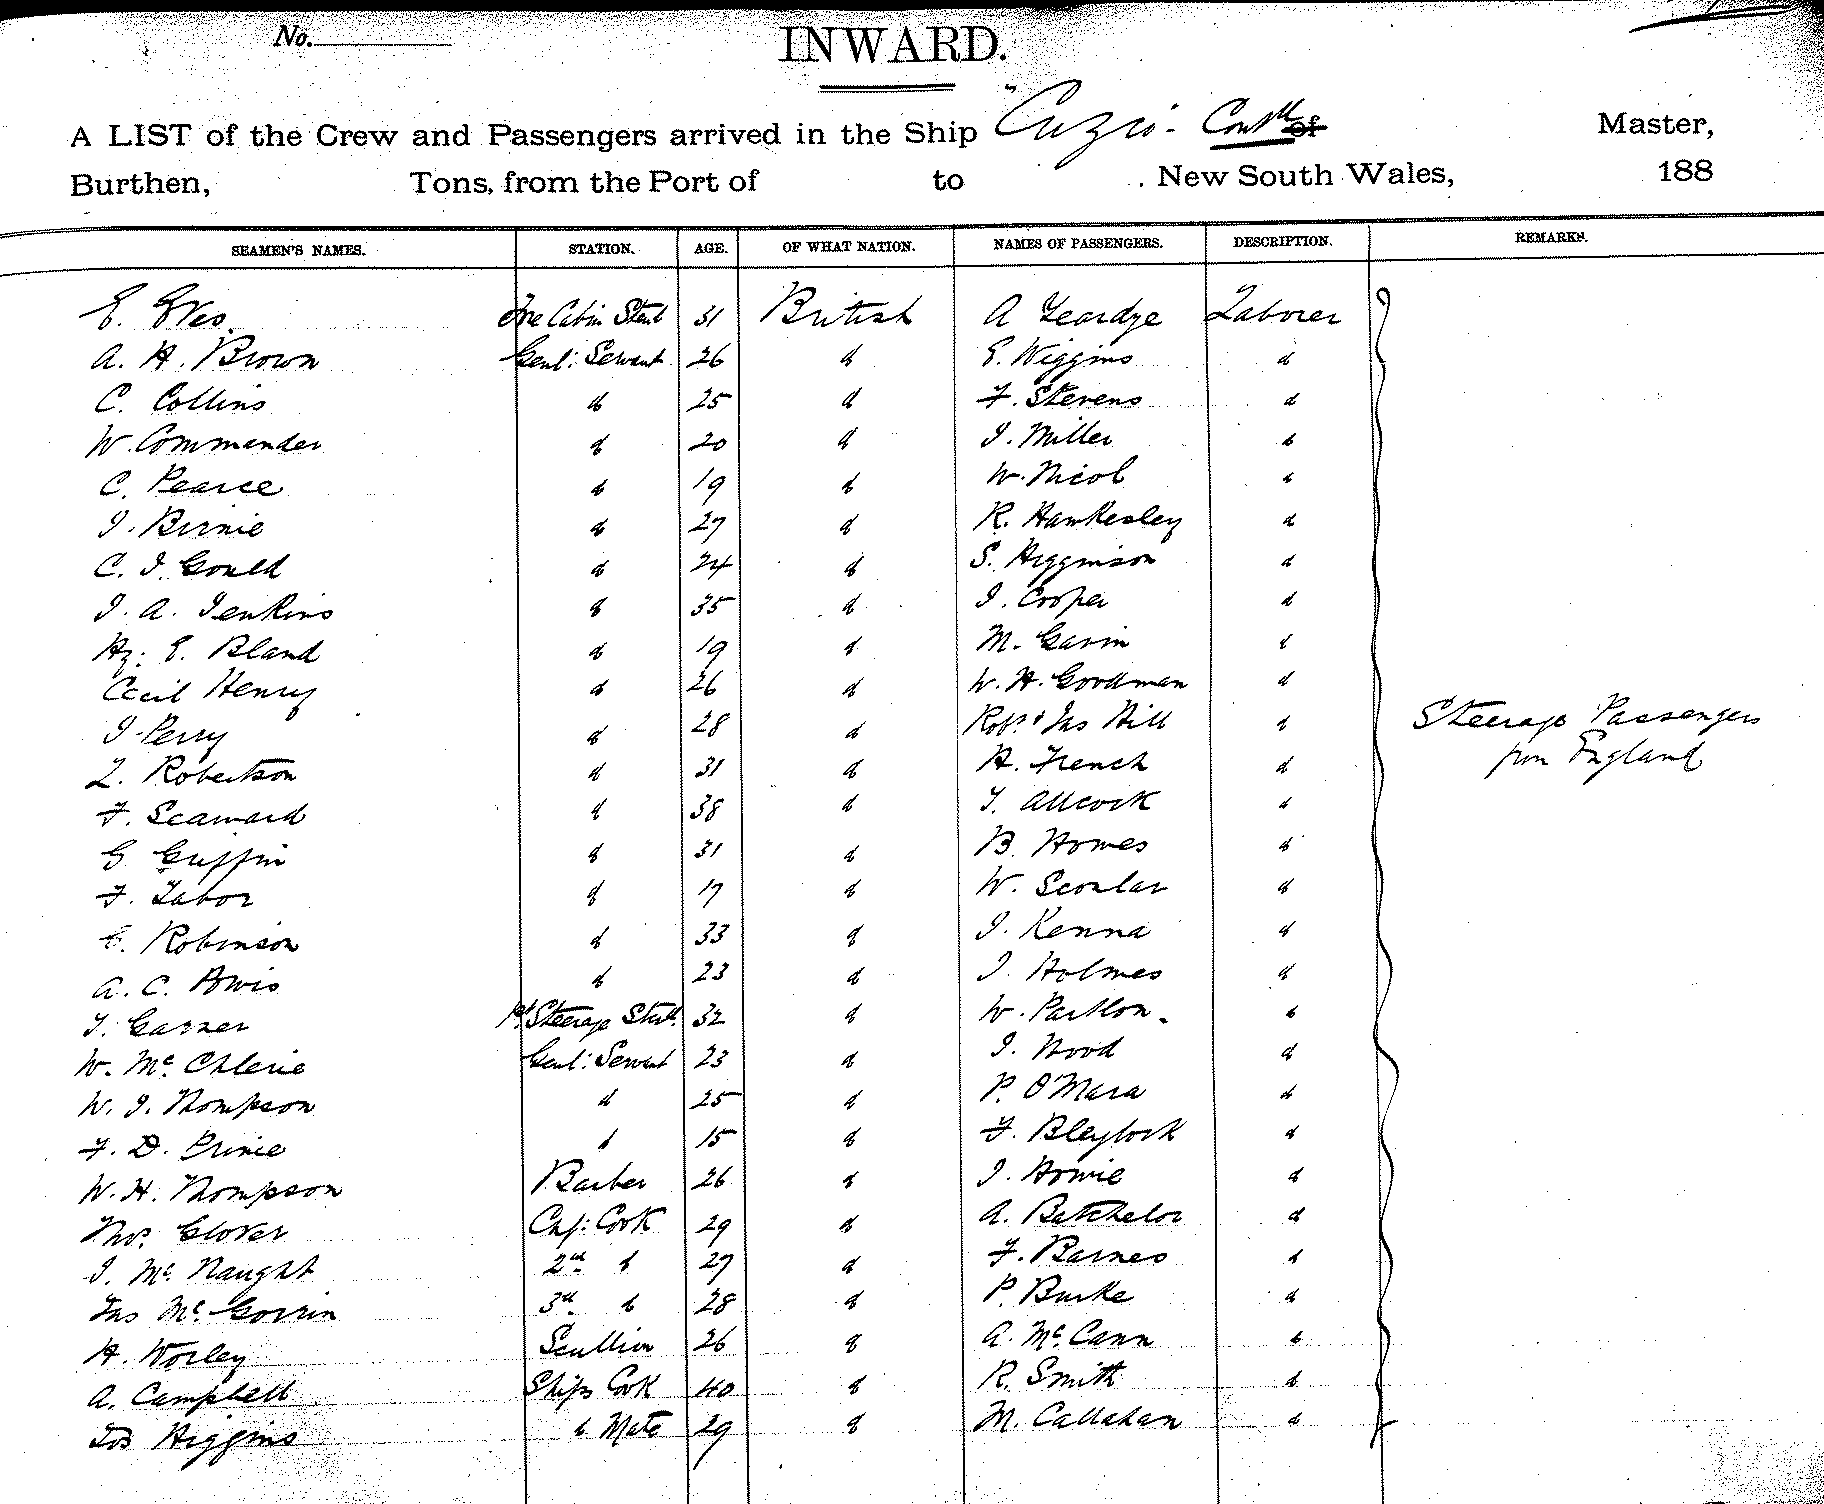 No.
INWARD.
A LIST of the Crew and Passengers arrived in the Ship "Cuzco - Contd of Master,
Burthen, Tons, from the Port of to . New South Wales, 188
SEAMEN'S NAMES. STATION. AGE. OF WHAT NATION. NAMES OF PASSENGERS. DESCRIPTION. REMARKS.
E. Eves. Fore Cabin Stewd 31 British A Yeardye Laborer
A. H. Brown Genl: Servant 26 do E. Wiggins do
C. Collins do 25 do F. Stevens do
W. Commander do 20 do J. Miller do
C. Pearce do 19 do W. Nicol do
J. Birnie do 27 do R. Hawkesley do
C. J. Gould do 24 do S. Higginson do
J. A. Jenkins do 35 do J. Cooper do
Hy: E. Bland do 19 do M. Gavin do
Cecil Henry do 26 do W. H. Goodman do
J. Perry do 28 do Robt & Jas Hill do Steerage Passengers
L. Robertson do 31 do H. French do from England
F. Seaward do 38 do T. Allcock do
G. Griffin do 31 do B. Howes do
F. Tabor do 17 do W. Scoular do
E. Robinson do 33 do J. Kenna do
A. C. Powis do 23 do J. Holmes do
T. Garner 1st Steerage Stwd. 32 do W. Partlon. do
W. Mc. Chlerie Genl: Servant 23 do J. Wood do
W. J. Thompson do 25 do P. O'Mara do
F. D. Prinie do 15 do F. Bleylock do
W. H. Thompson Barber 26 do J. Howie do
Thos. Glover Cap: Cook 29 do A. Batchelor do
J. Mc. Naught 2nd do 27 do F. Barnes do
Jas Mc. Gorrin 3rd do 28 do P. Burke do
H. Worley Scullion 26 do A. Mc. Cann do
A. Campbell Ships Cook 40 do R. Smith do
Jos Higgins do Mate 29 do M. Callahan do